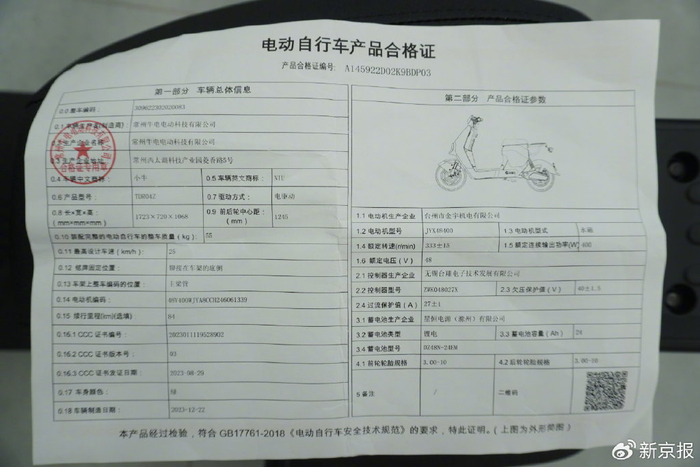 电动自行车产品合格证
产品合格证编号: A145922D02K9BDP03
第一部分 车辆总体信息
0.0 整车编码:
0.1 车辆生产企业(制造商) 常州牛电电动科技有限公司
常州牛电电动科技有限公司
常州西太湖科技产业园菱香路5号
0.4 车辆中文商标: 小牛 0.5 车辆英文商标: NIU
0.6 产品型号: TDR04Z 0.7 驱动方式: 电驱动
0.8 长×宽×高: (mm×mm×mm) 1723×720×1068 0.9 前后轮中心距: (mm) 1245
0.10 装配完整的电动自行车的整车质量(kg): 55
0.11 最高设计车速(km/h): 25
0.12 铭牌固定位置: 铆接在车架的底侧
0.13 车架上整车编码的位置: 主梁管
0.14 电动机编码:
0.15 续行里程(km)(选填): 84
0.16.1 CCC 证书编号: 2023011119528902
0.16.2 CCC 证书版本号: 03
0.16.3 CCC 证书发证日期: 2023-08-29
0.17 车身颜色:
0.18 车辆制造日期: 2023-12-22
第二部分 产品合格证参数
1.1 电动机生产企业 台州市金宇机电有限公司
1.2 电动机型号 1.3 电动机型式 车厢
1.4 额定转速(r/min) 331±15 1.5 额定连续输出功率(W) 400
1.6 额定电压(V) 48
2.1 控制器生产企业
2.2 控制器型号 2.3 欠压保护值(V) 40±1.5
2.4 过流保护值(A) 27±1
3.1 蓄电池生产企业 星恒电源(滁州)有限公司
3.2 蓄电池类型 锂电 3.3 蓄电池容量(Ah) 24
3.4 蓄电池型号
4.1 前轮轮胎规格 3.00-10 4.2 后轮轮胎规格 3.00-10
5 备注 / 二维码
本产品经过检验，符合 GB17761-2018《电动自行车安全技术规范》的要求，特此证明。(上图为外形简图)
合格证专用章
新京报